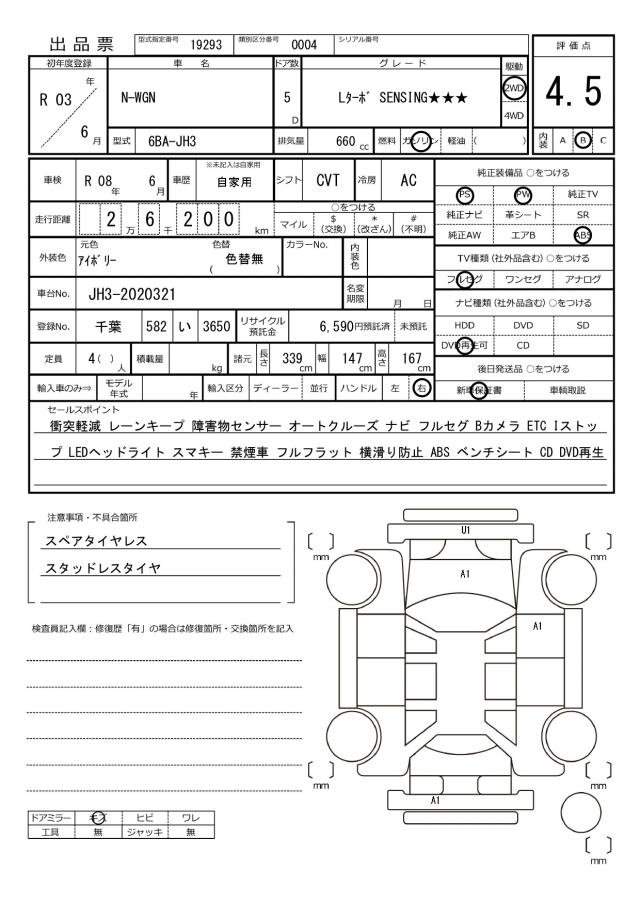 出品票 型式指定番号 19293 類別区分番号 0004 シリアル番号
評価点
4.5
内装 A B C
初年度登録 車名 ドア数 グレード 駆動
R 03 年 6 月 N-WGN 5 D Lターボ SENSING★★★ 2WD 4WD
型式 6BA-JH3 排気量 660 cc 燃料 ガソリン 軽油 ( )
車検 R 08 年 6 月 車歴 ※未記入は自家用 自家用 シフト CVT 冷房 AC
走行距離 2 万 6 千 2 0 0 km ○をつける
マイル $(交換) *(改ざん) #(不明)
外装色 元色 アイボリー 色替 ( 色替無 ) カラーNo. 内装色
車台No. JH3-2020321 名変期限 月 日
登録No. 千葉 582 い 3650 リサイクル預託金 6,590円預託済 未預託
定員 4 ( ) 人 積載量 kg 諸元 長さ 339 cm 幅 147 cm 高さ 167 cm
輸入車のみ⇒ モデル年式 年 輸入区分 ディーラー 並行 ハンドル 左 右
純正装備品 ○をつける
PS PW 純正TV
純正ナビ 革シート SR
純正AW エアB ABS
TV種類(社外品含む)○をつける
フルセグ ワンセグ アナログ
ナビ種類(社外品含む)○をつける
HDD DVD SD
DVD再生可 CD
後日発送品 ○をつける
新車保証書 車輌取説
セールスポイント
衝突軽減 レーンキープ 障害物センサー オートクルーズ ナビ フルセグ Bカメラ ETC Iストッ
プ LEDヘッドライト スマキー 禁煙車 フルフラット 横滑り防止 ABS ベンチシート CD DVD再生
注意事項・不具合箇所
スペアタイヤレス
スタッドレスタイヤ
検査員記入欄:修復歴「有」の場合は修復箇所・交換箇所を記入
ドアミラー キズ ヒビ ワレ
工具 無 ジャッキ 無
U1
A1
A1
A1
mm
mm
mm
mm
mm